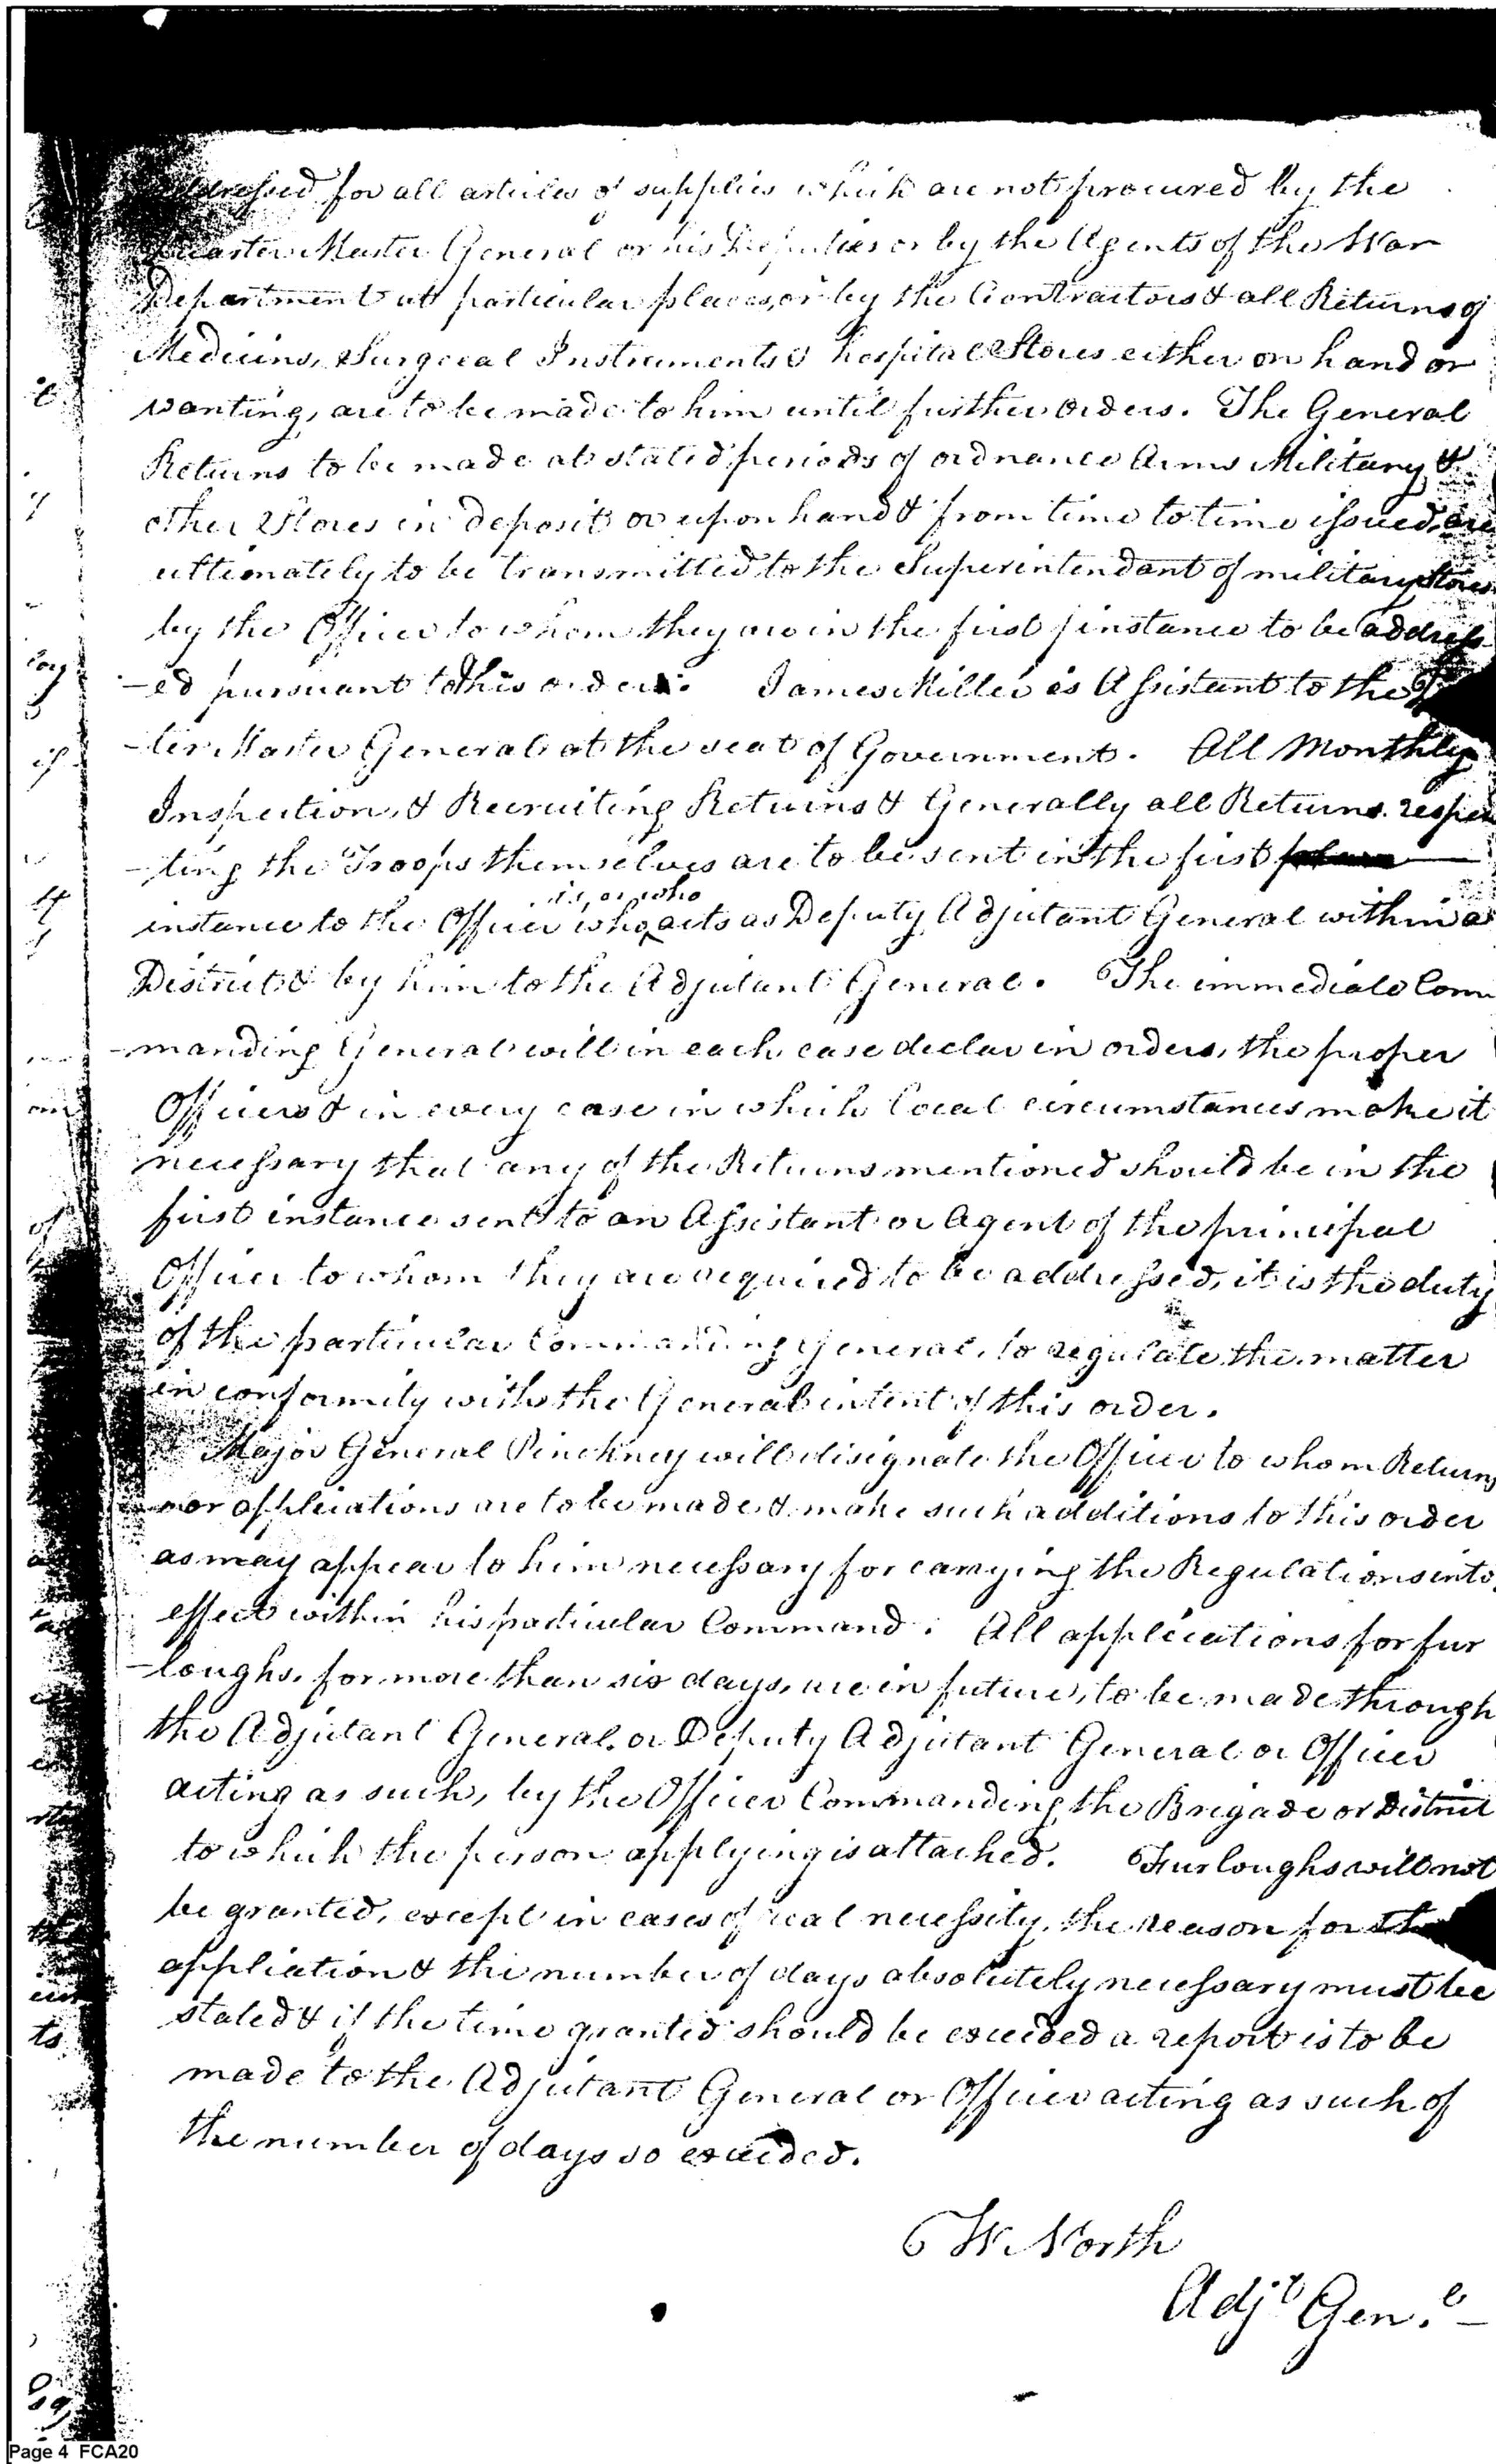 addressed for all articles of supplies which are not procured by the
Quarter Master General or his Deputies or by the Agents of the War
Department at particular places, or by the Contractors & all Returns of
Medicins, Surgical Instruments & hospital Stores either on hand or
wanting, are to be made to him until further orders. The General
Returns to be made at stated periods of ordnance Arms Military &
other Stores in deposit or upon hand & from time to time issued, are
ultimately to be transmitted to the Superintendant of military Stores
by the Officer to whom they are in the first instance to be address
-ed pursuant to this order. James Miller is Assistant to the
-ter Master General at the seat of Government. All Monthly
Inspection, & Recruiting Returns & Generally all Returns respec
-ting the Troops themselves are to be sent in the first
is, or who
instance to the Officer who acts as Deputy Adjutant General within a
District & by him to the Adjutant General. The immediate Com
-manding General will in each case declar in orders, the proper
Officers & in every case in which local circumstances make it
necessary that any of the Returns mentioned should be in the
first instance sent to an Assistant or Agent of the principal
Officer to whom they are required to be addressed, it is the duty
of the particular Commanding General, to regulate the matter
in conformity with the General intent of this order.
Major General Pinckney will disignate the Officer to whom Returns
or applications are to be made & make such additions to this order
as may appear to him necessary for carrying the Regulations into
effect within his particular Command. All applications for fur
-loughs, for more than six days, are in future, to be made through
the Adjutant General or Deputy Adjutant General or Officer
acting as such, by the Officer Commanding the Brigade or District
to which the person applying is attached. Furloughs will not
be granted, except in cases of real necessity, the reason for the
appliation & the number of days absolutely necessary must be
stated & if the time granted should be exceeded a report is to be
made to the Adjutant General or Officer acting as such of
the number of days so exceeded.
W. North
Adjt Genl
Page 4 FCA20